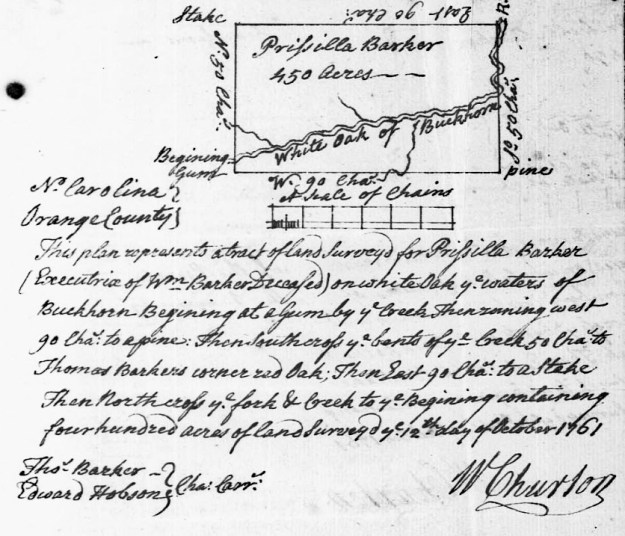 Stake
East 90 Cha:
R
N. 50 Cha.
Prissilla Barker
450 Acres — —
So. 50 Cha.
White Oak of Buckhorn
Begining
Gum
pine
W. 90 Cha.
A Scale of Chains
No. Carolina }
Orange County }
This plan represents a tract of land Surveyd for Prissilla Barker
(Executrix of Wm Barker Deceased) on white Oak ye. waters of
Buckhorn Begining at a Gum by ye Creek Then running west
90 Cha. to a pine: Then South cross ye. bents of ye Creek 50 Cha. to
Thomas Barkers corner red Oak; Then East 90 Cha. to a Stake
Then North cross ye. fork & Creek to ye Begining containing
four hundred acres of land Surveyd ye. 12th. day of October 1761
Thos. Barker }
Edward Hobson } Cha: Carrs.
W Churton